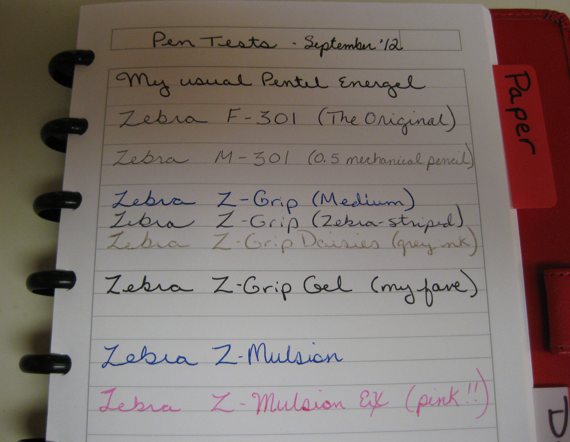 Pen Tests - September '12
My usual Pentel Energel
Zebra F-301 (The Original)
Zebra M-301 (0.5 mechanical pencil)
Zebra Z-Grip (Medium)
Zebra Z-Grip (Zebra-striped)
Zebra Z-Grip Daisies (grey ink)
Zebra Z-Grip Gel (my fave)
Zebra Z-Mulsion
Zebra Z-Mulsion EX (pink!!)
Paper